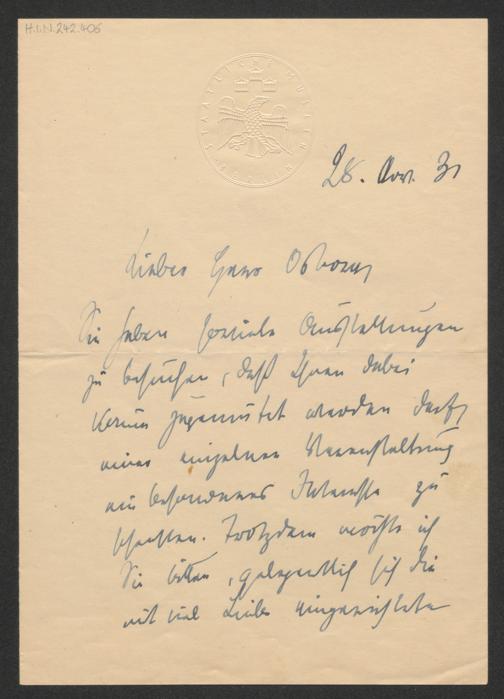 H.I.N. 242.406
STAATLICHE MUSEEN
BERLIN
28. Nov. 31
Lieber Herr Osborn,
Sie haben soviele Ausstellungen
zu besuchen, daß Ihnen dabei
kaum zugemutet werden darf,
einer einzelnen Veranstaltung
ein besonderes Interesse zu
schenken. Trotzdem möchte ich
Sie bitten, gelegentlich sich die
mit viel Liebe eingerichtete